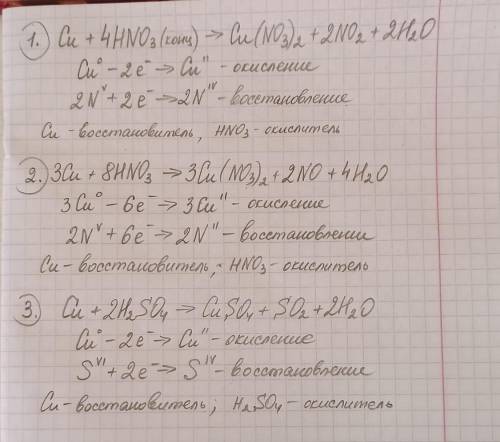 1. Cu + 4HNO₃(конц) → Cu(NO₃)₂ + 2NO₂ + 2H₂O
Cu⁰ - 2e⁻ → Cuᴵᴵ - окисление
2Nⱽ + 2e⁻ → 2Nᴵⱽ - восстановление
Cu - восстановитель, HNO₃ - окислитель
2. 3Cu + 8HNO₃ → 3Cu(NO₃)₂ + 2NO + 4H₂O
3Cu⁰ - 6e⁻ → 3Cuᴵᴵ - окисление
2Nⱽ + 6e⁻ → 2Nᴵᴵ - восстановление
Cu - восстановитель, HNO₃ - окислитель
3. Cu + 2H₂SO₄ → CuSO₄ + SO₂ + 2H₂O
Cu⁰ - 2e⁻ → Cuᴵᴵ - окисление
Sⱽᴵ + 2e⁻ → Sᴵⱽ - восстановление
Cu - восстановитель; H₂SO₄ - окислитель